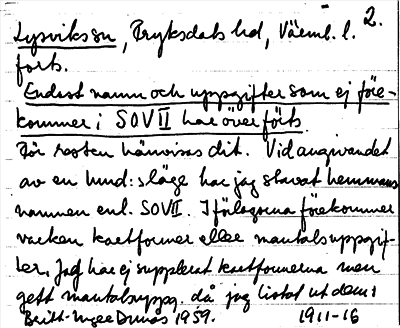 2.
Lysviksn, Fryksdals hd, Värml. l.
forts.
Endast namn och uppgifter som ej före-
kommer i SOV II har överförts
För resten hänvisas dit. Vid angivandet
av en hmd:s läge har jag stavat hemmans
namnen enl. SOV II. I förlagorna förekommer
varken kartformer eller mantalsuppgif-
ter. Jag har ej supplerat kartformerna men
gett mantalsuppg. då jag listat ut dem:
Britt-Inger 1959. 1911-16